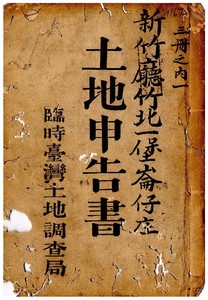 三冊之內一
新竹廳竹北一堡崙仔庄
土地申告書
臨時臺灣土地調查局